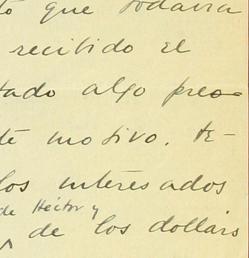 que todavia
recibido el
tado algo preo-
te motivo. te-
los interesados
de Héctor y
de los dollars